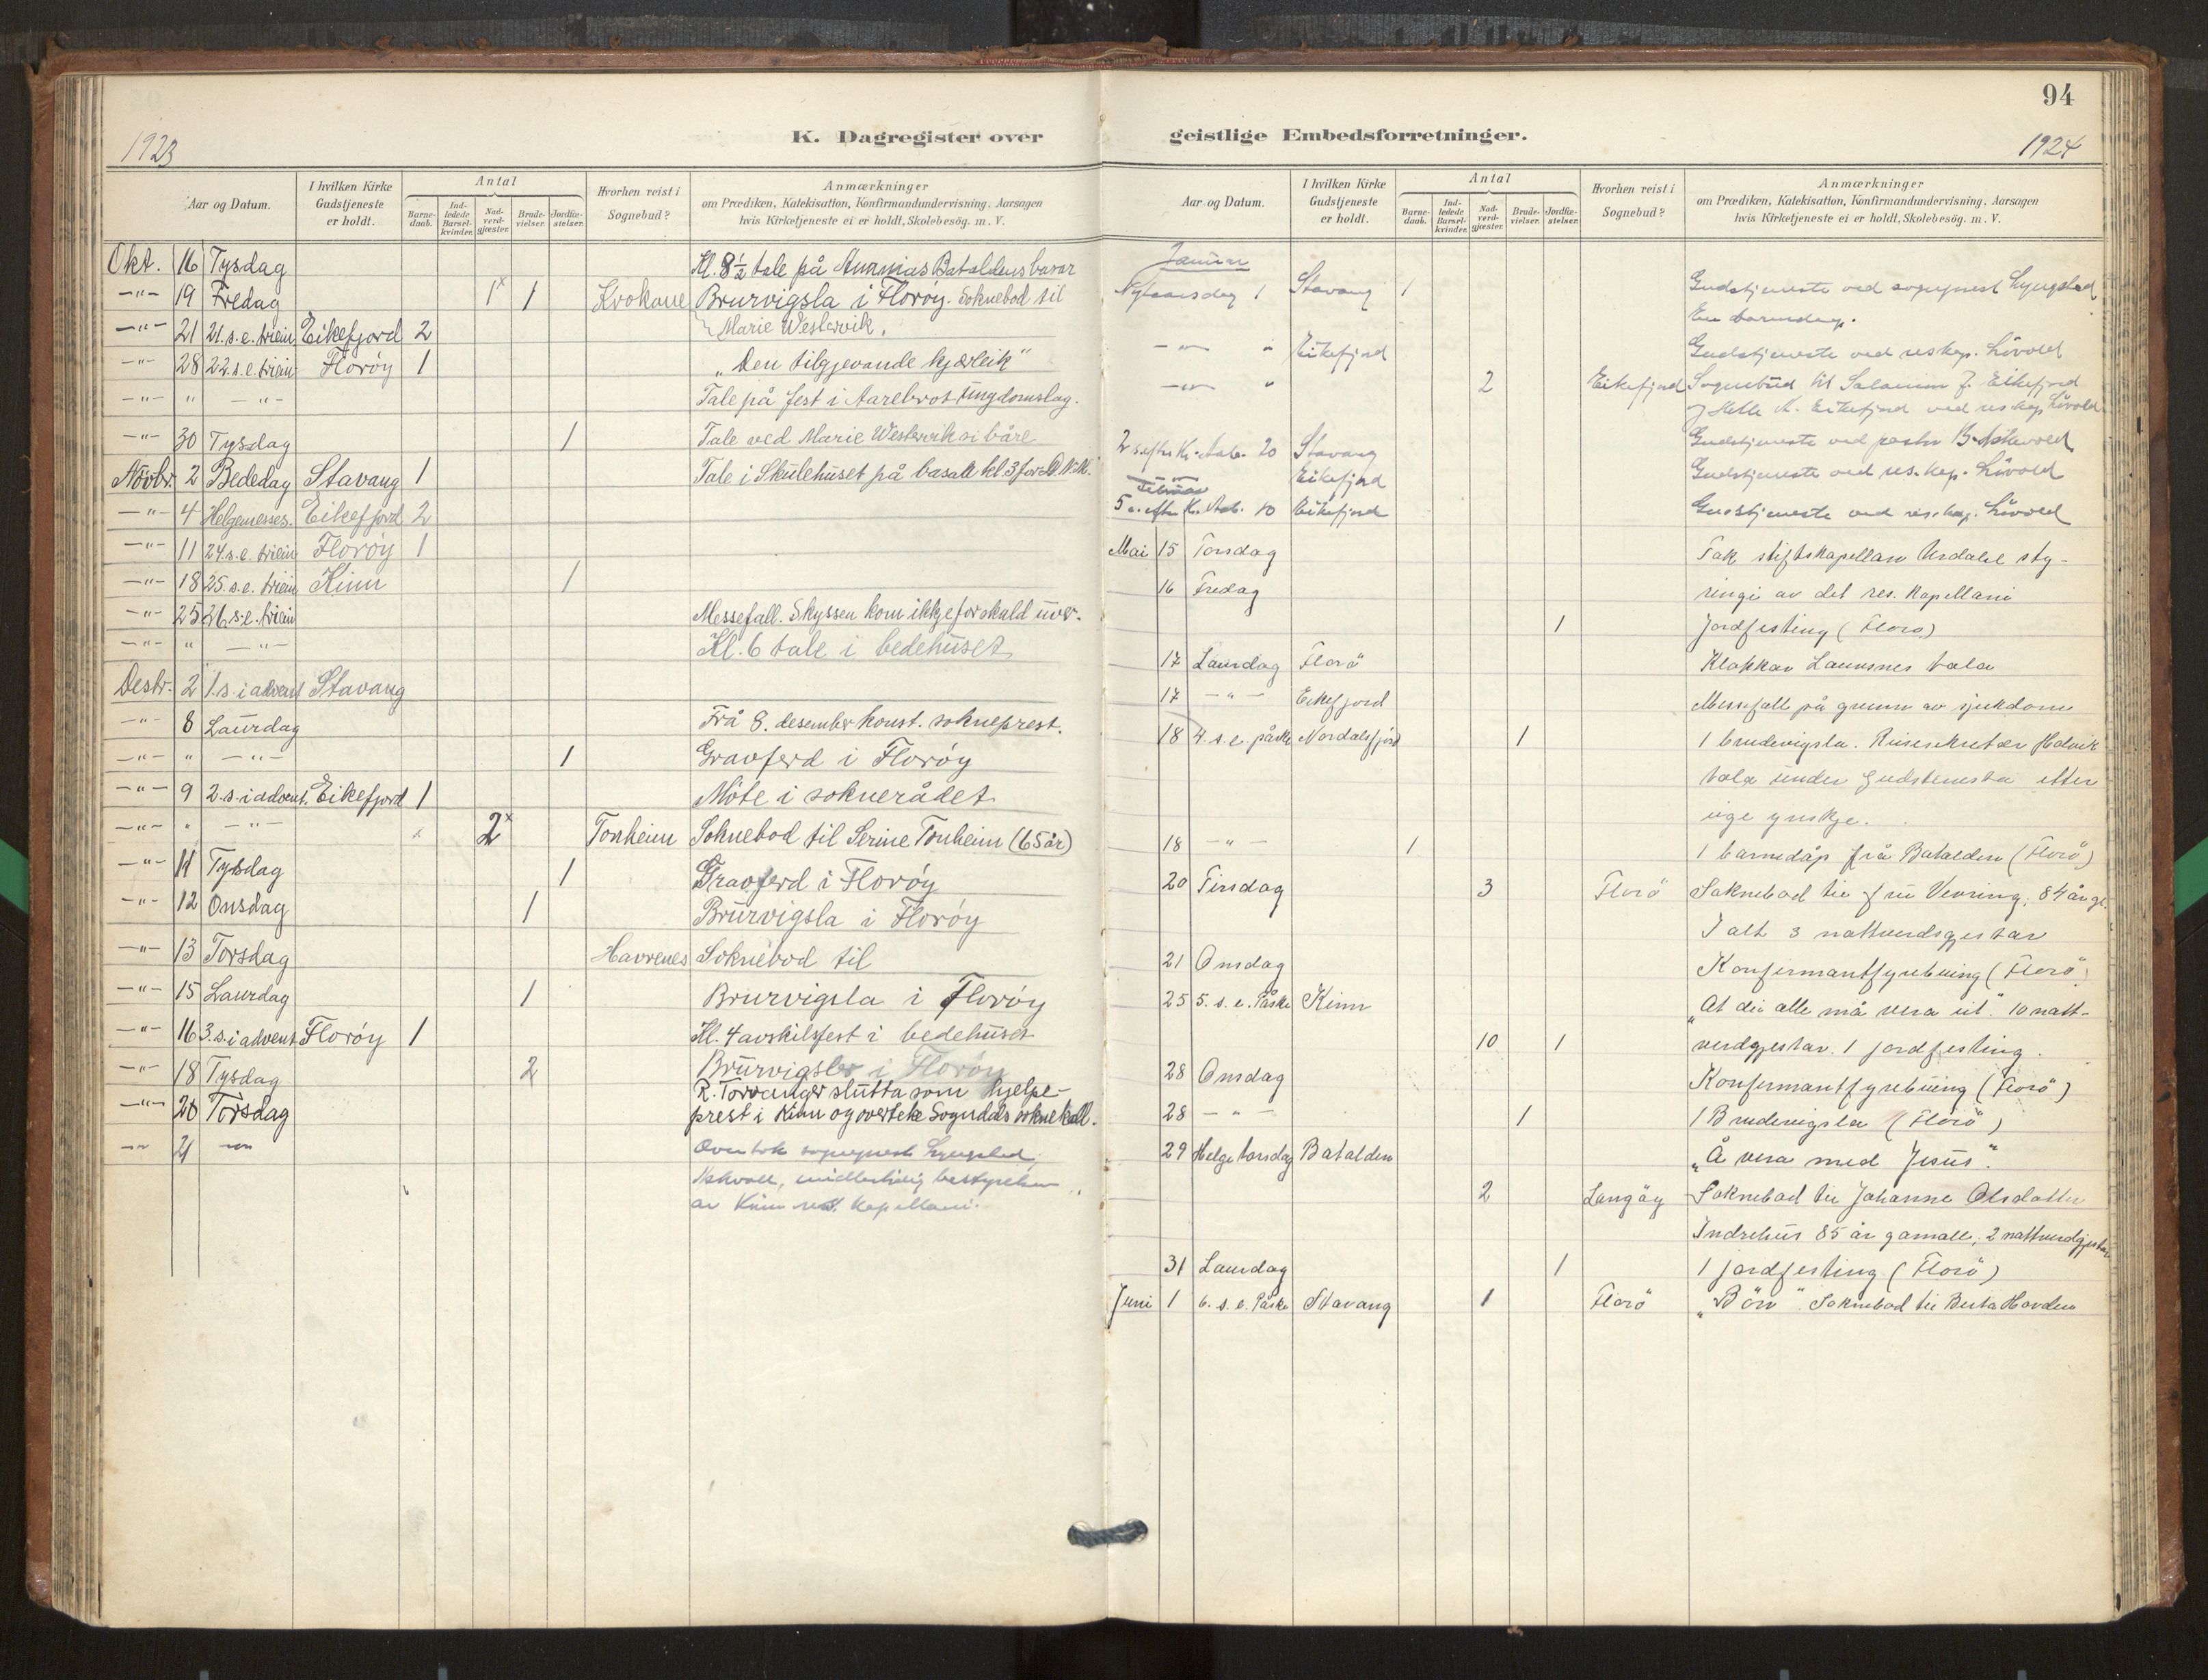 94
K. Dagregister over geistlige Embedsforretninger.
1923
Aar og Datum. I hvilken Kirke Gudstjeneste er holdt. Antal Barne-daab. Ind-ledede Barsel-kvinder. Nad-verd-gjæster. Brude-vielser. Jordfæ-stelser. Hvorhen reist i Sognebud? Anmærkninger
om Prædiken, Katekisation, Konfirmandundervisning, Aarsagen
hvis Kirketjeneste ei er holdt, Skolebesög. m. V.
Okt. 16 Tysdag Kl. 8½ tale på Ananias Bataldens basar
-"- 19 Fredag 1x 1 Krokane Brurvigsla i Florøy. Soknebod til
Marie Westervik.
-"- 21 21.s.e. triein Eikefjord 2
-"- 28 22.s.e. triein Florøy 1 „Den tilgjevande kjærleik"
-"- " -"- Tale på fest i Aarebrot Ungdomslag.
-"- 30 Tysdag 1 Tale ved Marie Westervik si båre
Növbr. 2 Bededag Stavang 1 Tale i Skulehuset på basar kl 3 for
-"- 4 Helgemesses. Eikefjord 2
-"- 11 24.s.e. triein Florøy 1
-"- 18 25.s.e. triein Kinn 1
-"- 25 26.s.e. triein Messefall. Skyssen kom ikkje for skuld uver.
-"- " -"- Kl. 6 tale i bedehuset
Desbr. 2 1.s. i advent Stavang
-"- 8 Laurdag Frå 8. desember konst. sokneprest.
-"- " -"- 1 Gravferd i Florøy
-"- 9 2.s. i advent. Eikefjord 1 Möte i soknerådet
-"- " -"- 2x Tonheim Soknebod til Serine Tonheim (65 år)
-"- 11 Tysdag 1 Gravferd i Florøy
-"- 12 Onsdag 1 Brurvigsla i Florøy
-"- 13 Torsdag Havrenes Soknebod til
-"- 15 Laurdag 1 Brurvigsla i Florøy
-"- 16 3.s. i advent Florøy 1 Kl. 4 avskilsfest i bedehuset
-"- 18 Tysdag 2 Brurvigsler i Florøy
R. Torvanger slutta som hjelpe-
-"- 20 Torsdag prest i Kinn og overtek Sogndals soknekall.
-"- 21 -"- Overtok sogneprest Lyngstad,
Askvoll, midlertidig bestyrelsen
av Kinn res. kapellani.
1924
Aar og Datum. I hvilken Kirke Gudstjeneste er holdt. Antal Barne-daab. Ind-ledede Barsel-kvinder. Nad-verd-gjæster. Brude-vielser. Jordfæ-stelser. Hvorhen reist i Sognebud? Anmærkninger
om Prædiken, Katekisation, Konfirmandundervisning, Aarsagen
hvis Kirketjeneste ei er holdt, Skolebesög. m. V.
Januar
Nytaarsdag 1 Stavang 1 Gudstjeneste ved sogneprest Lyngstad
En barnedap.
-"- " Eikefjord Gudstjeneste ved res kap. Lövold
-"- " 2 Eikefjord Sognebud til Salamon J. Eikefjord
J. Eikefjord ved res kap Lövold
2 s. efter Kr. Aab. 20 Stavang Gudstjeneste ved pastor B. Askvold
-"- Eikefjord Gudstjeneste ved res. kap. Lövold
Februar
5 s. efter Kr. Aab. 10 Eikefjord Gudstjeneste ved res. kap. Lövold
Mai 15 Torsdag Tak stiftskapellan Urdahl sty-
16 Fredag ringi av det res. kapellani
1 Jordfesting (Florö)
17 Laurdag Florö Klokkar Lauvsnes tala
17 -"- Eikefjord Messefall på grunn av sjukdom
18 4.s.e. påske Nordalsfjord 1 1 brudevigsla. Reisesekretær Hølvik
tala under gudstenesta etter
eige ynskje.
18 -"- 1 1 barnedåp frå Batalden (Florö)
20 Tirsdag 3 Florö Soknebod til fru Vevring, 84 år gl.
I alt 3 nattverdsgjestar
21 Onsdag Konfirmantfyrebuing (Florö)
25 5. s. e. Påske Kinn „At dei alle må vera eit". 10 natt-
10 1 verdgjestar. 1 jordfesting.
28 Onsdag Konfirmantfyrebuing (Florö)
28 -"- 1 1 Brudevigsla (Florö)
29 Helgetorsdag Batalden „Å vera med Jesus".
2 Langöy Soknebod til Johanne Olsdatter
Indrehus 85 år gamall, 2 nattverdgjestar
31 Laurdag 1 1 jordfesting (Florö)
Juni 1 6. s. e. Påske Stavang 1 Florö „Bön". Soknebod til Berta Havden